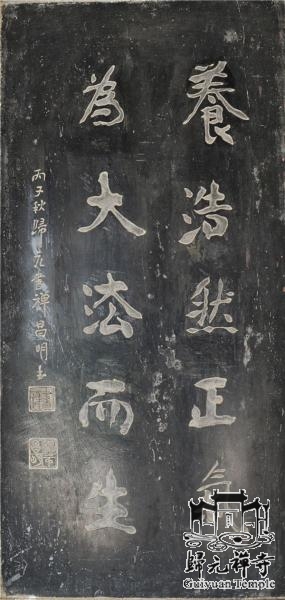 養浩然正氣
為大法而生
丙子秋歸元寺禪昌明書
歸元禪寺
Guiyuan Temple